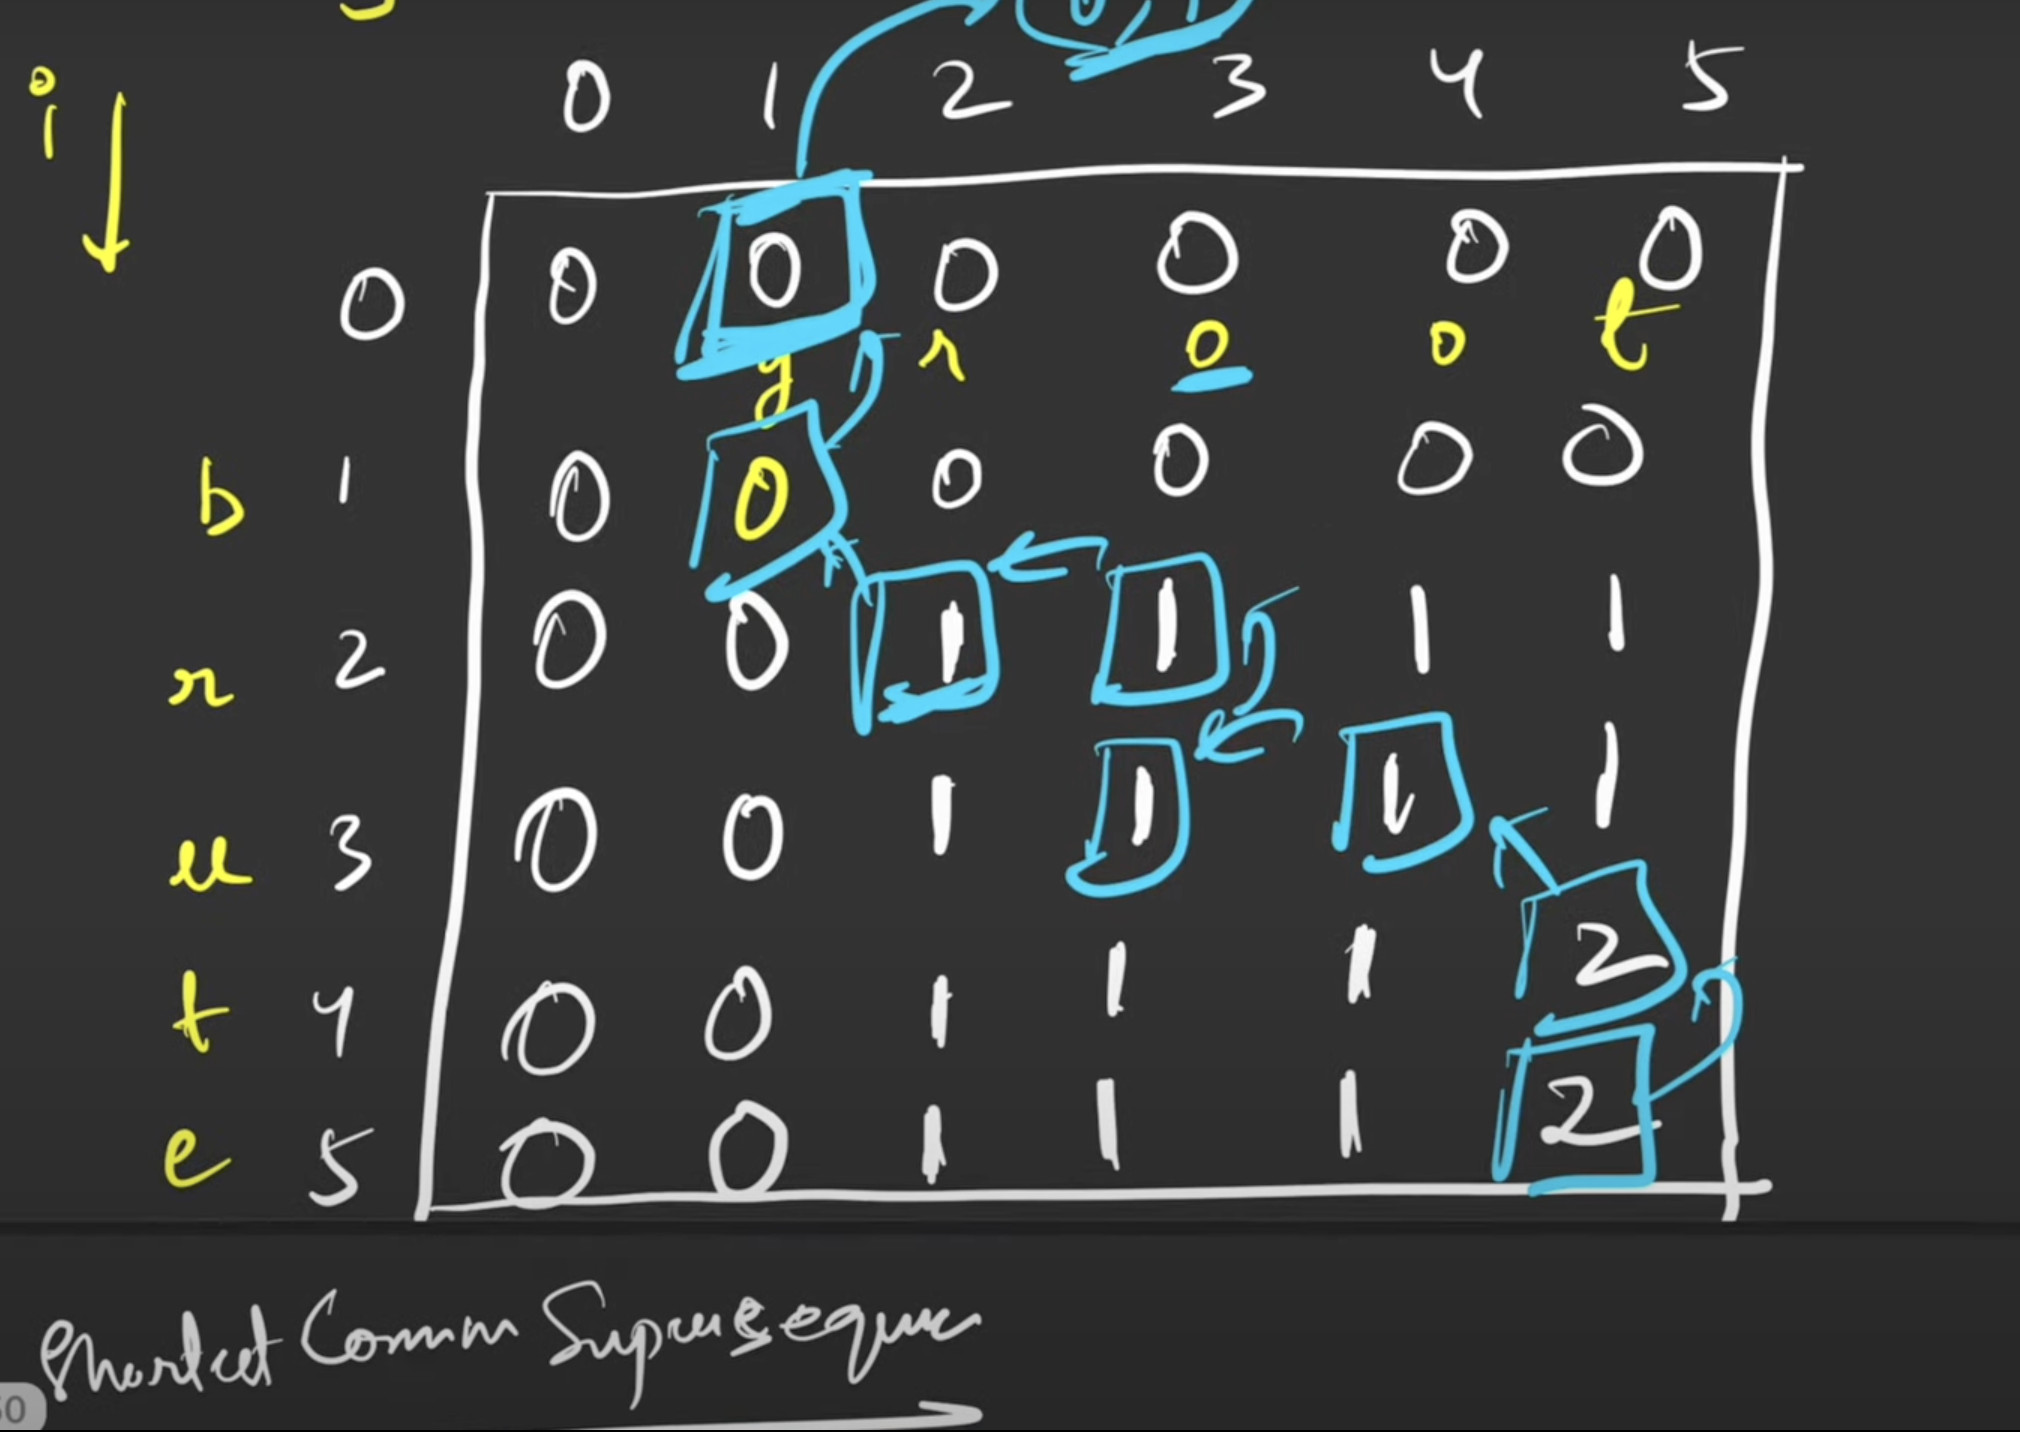 0 1 2 3 4 5
i
0 0 0 0 0 0 0
g r o o t
b 1 0 0 0 0 0 0
r 2 0 0 1 1 1 1
u 3 0 0 1 1 1 1
t 4 0 0 1 1 1 2
e 5 0 0 1 1 1 2
Shortest Comm Supersequence
50